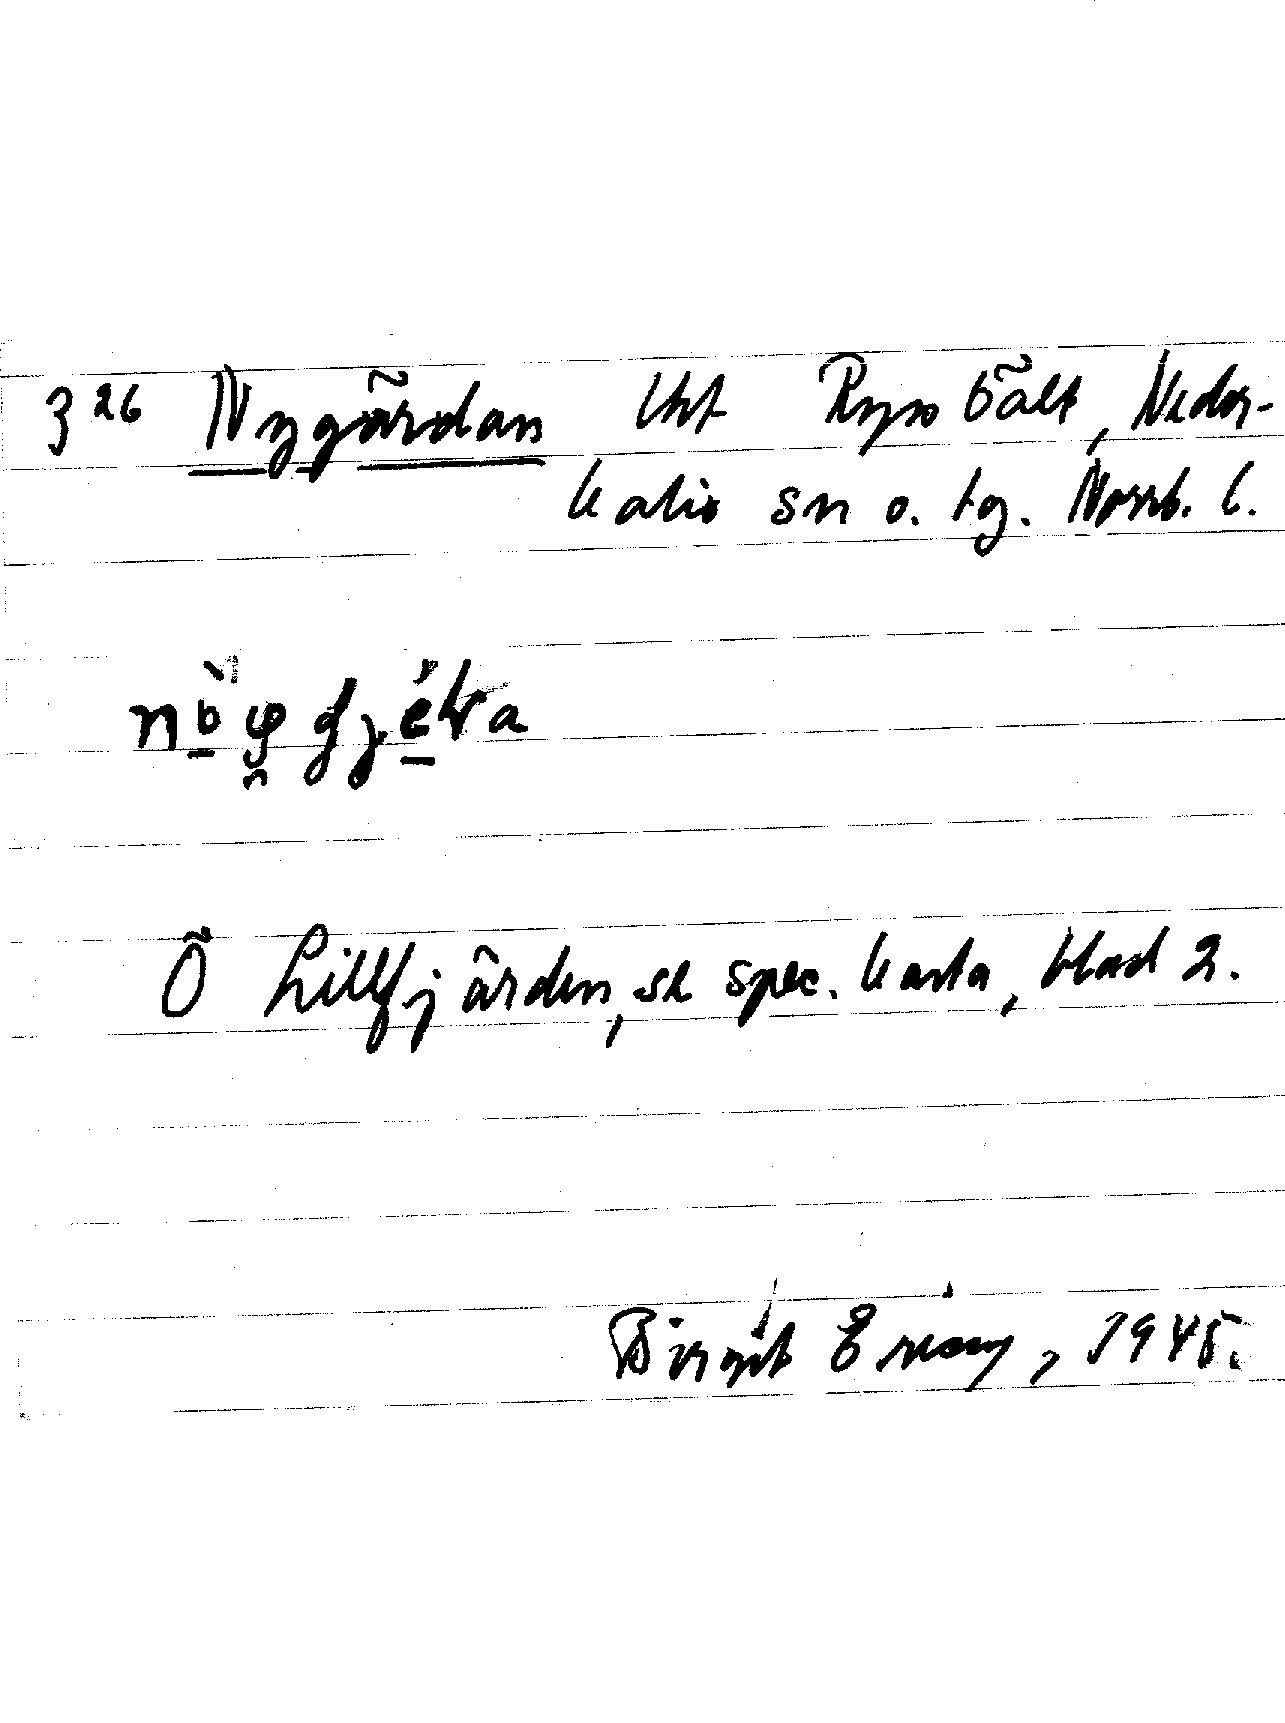 3 26 Nygärdan Ryssbält, Neder-
kalix sn o. tg. Norrb. l.
Ö Lillfjärden, se spec. karta, blad 2.
Birgit 1945.